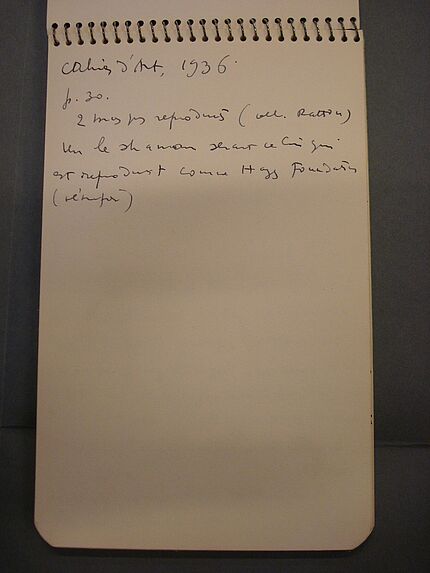 Cahiers d'Art, 1936.
p. 30.
2 masques reproduits (coll. Ratton)
Un le shaman serait celui qui
est reproduit comme Heye Foundation